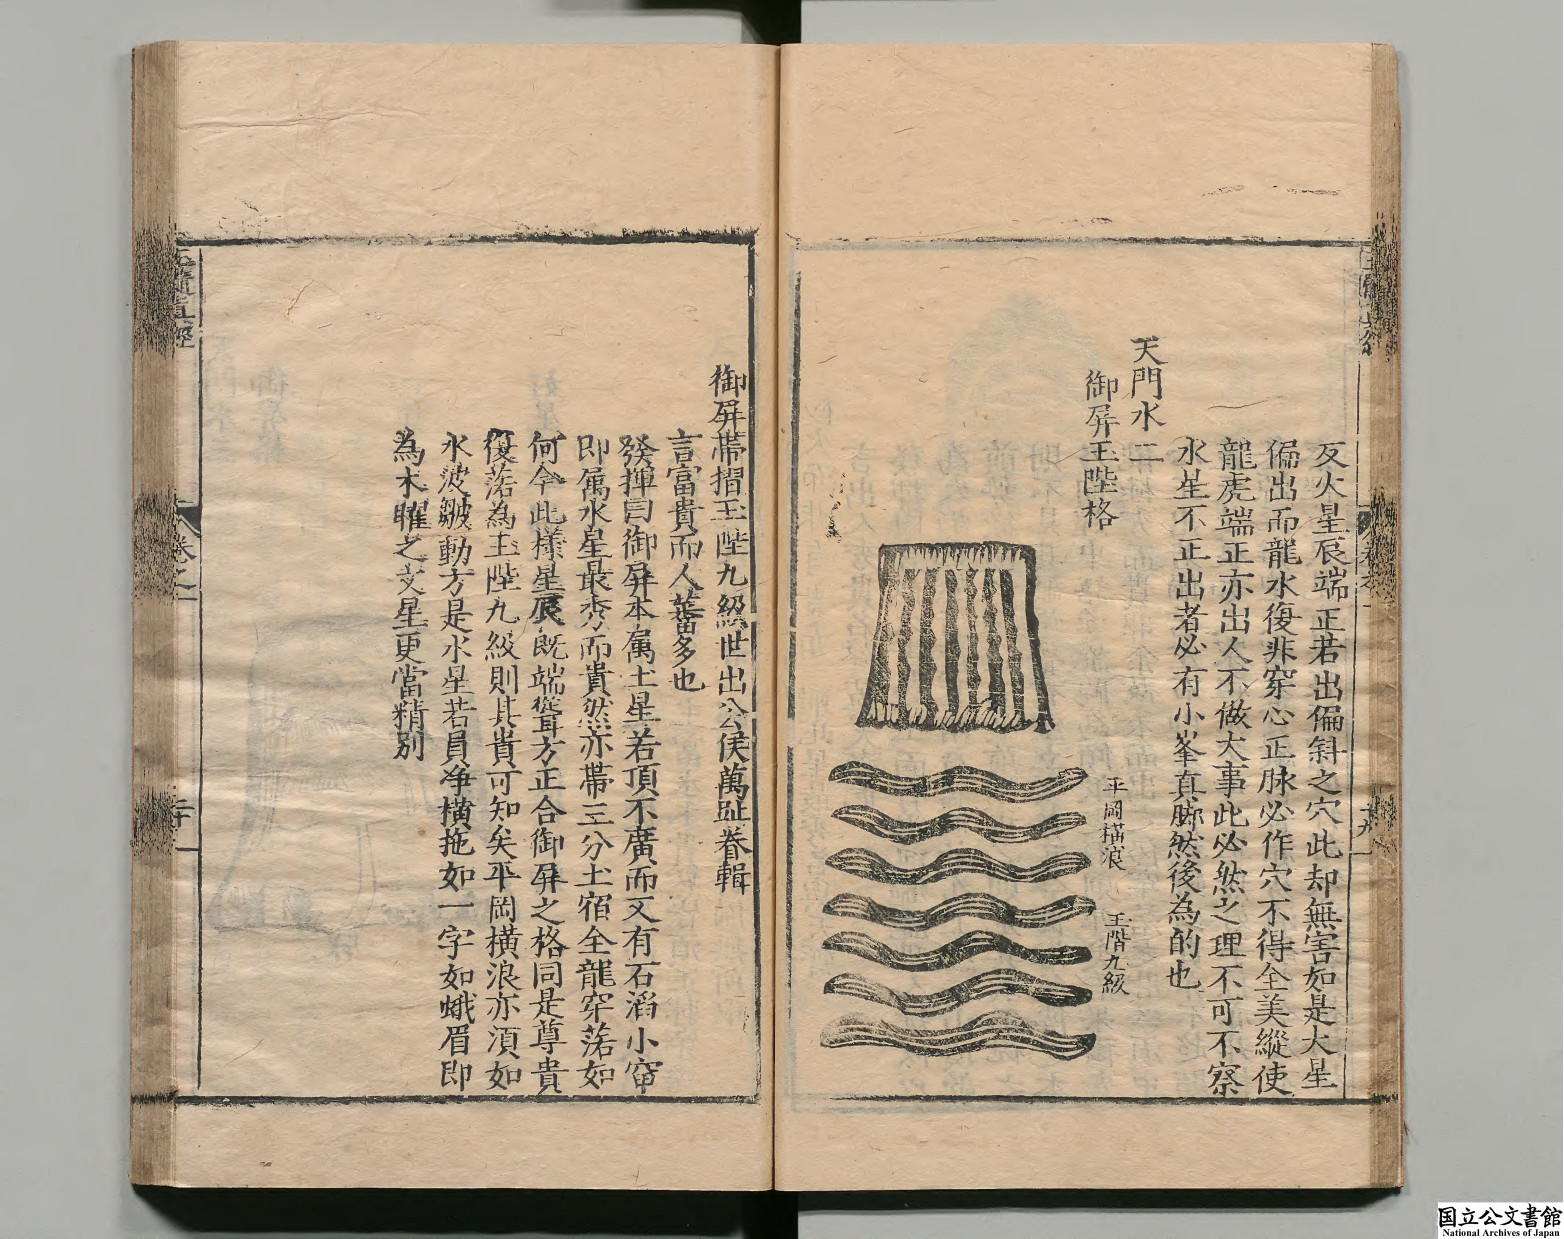 反火星辰端正若出偏斜之穴此却無害如是大星
偏出而龍水復非穿心正脉必作穴不得全美縱使
龍虎端正亦出人不做大事此必然之理不可不察
水星不正出者必有小峯真脉然後為的也
天門水二
御屏玉陛格
平岡橫浪
玉階九級
御屏帶摺玉陛九級世出公侯萬趾眷輯
言富貴而人蕃多也
發揮曰御屏本属土星若頂不廣而又有石滔小窜
即属水星最秀而貴然亦帶三分土宿全龍穿落如
何今此樣星辰既端聳方正合御屏之格同是尊貴
復落為玉陛九級則其貴可知矣平岡橫浪亦湏如
水波皺動方是水星若員净橫拖如一字如蛾眉即
為木曜之文星更當精別
卷之一
二十
十九
国立公文書館
National Archives of Japan